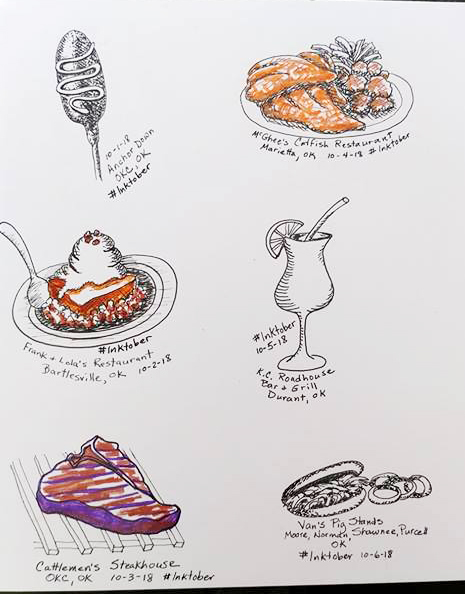 10-1-18
Anchor Down
OKC, OK
#Inktober
McGhee's Catfish Restaurant
Marietta, OK 10-4-18 #Inktober
#Inktober
Frank & Lola's Restaurant
Bartlesville, OK 10-2-18
#Inktober
10-5-18
K.C. Roadhouse
Bar & Grill
Durant, OK
Cattlemen's Steakhouse
OKC, OK 10-3-18 #Inktober
Van's Pig Stands
Moore, Norman, Shawnee, Purcell
OK
#Inktober 10-6-18